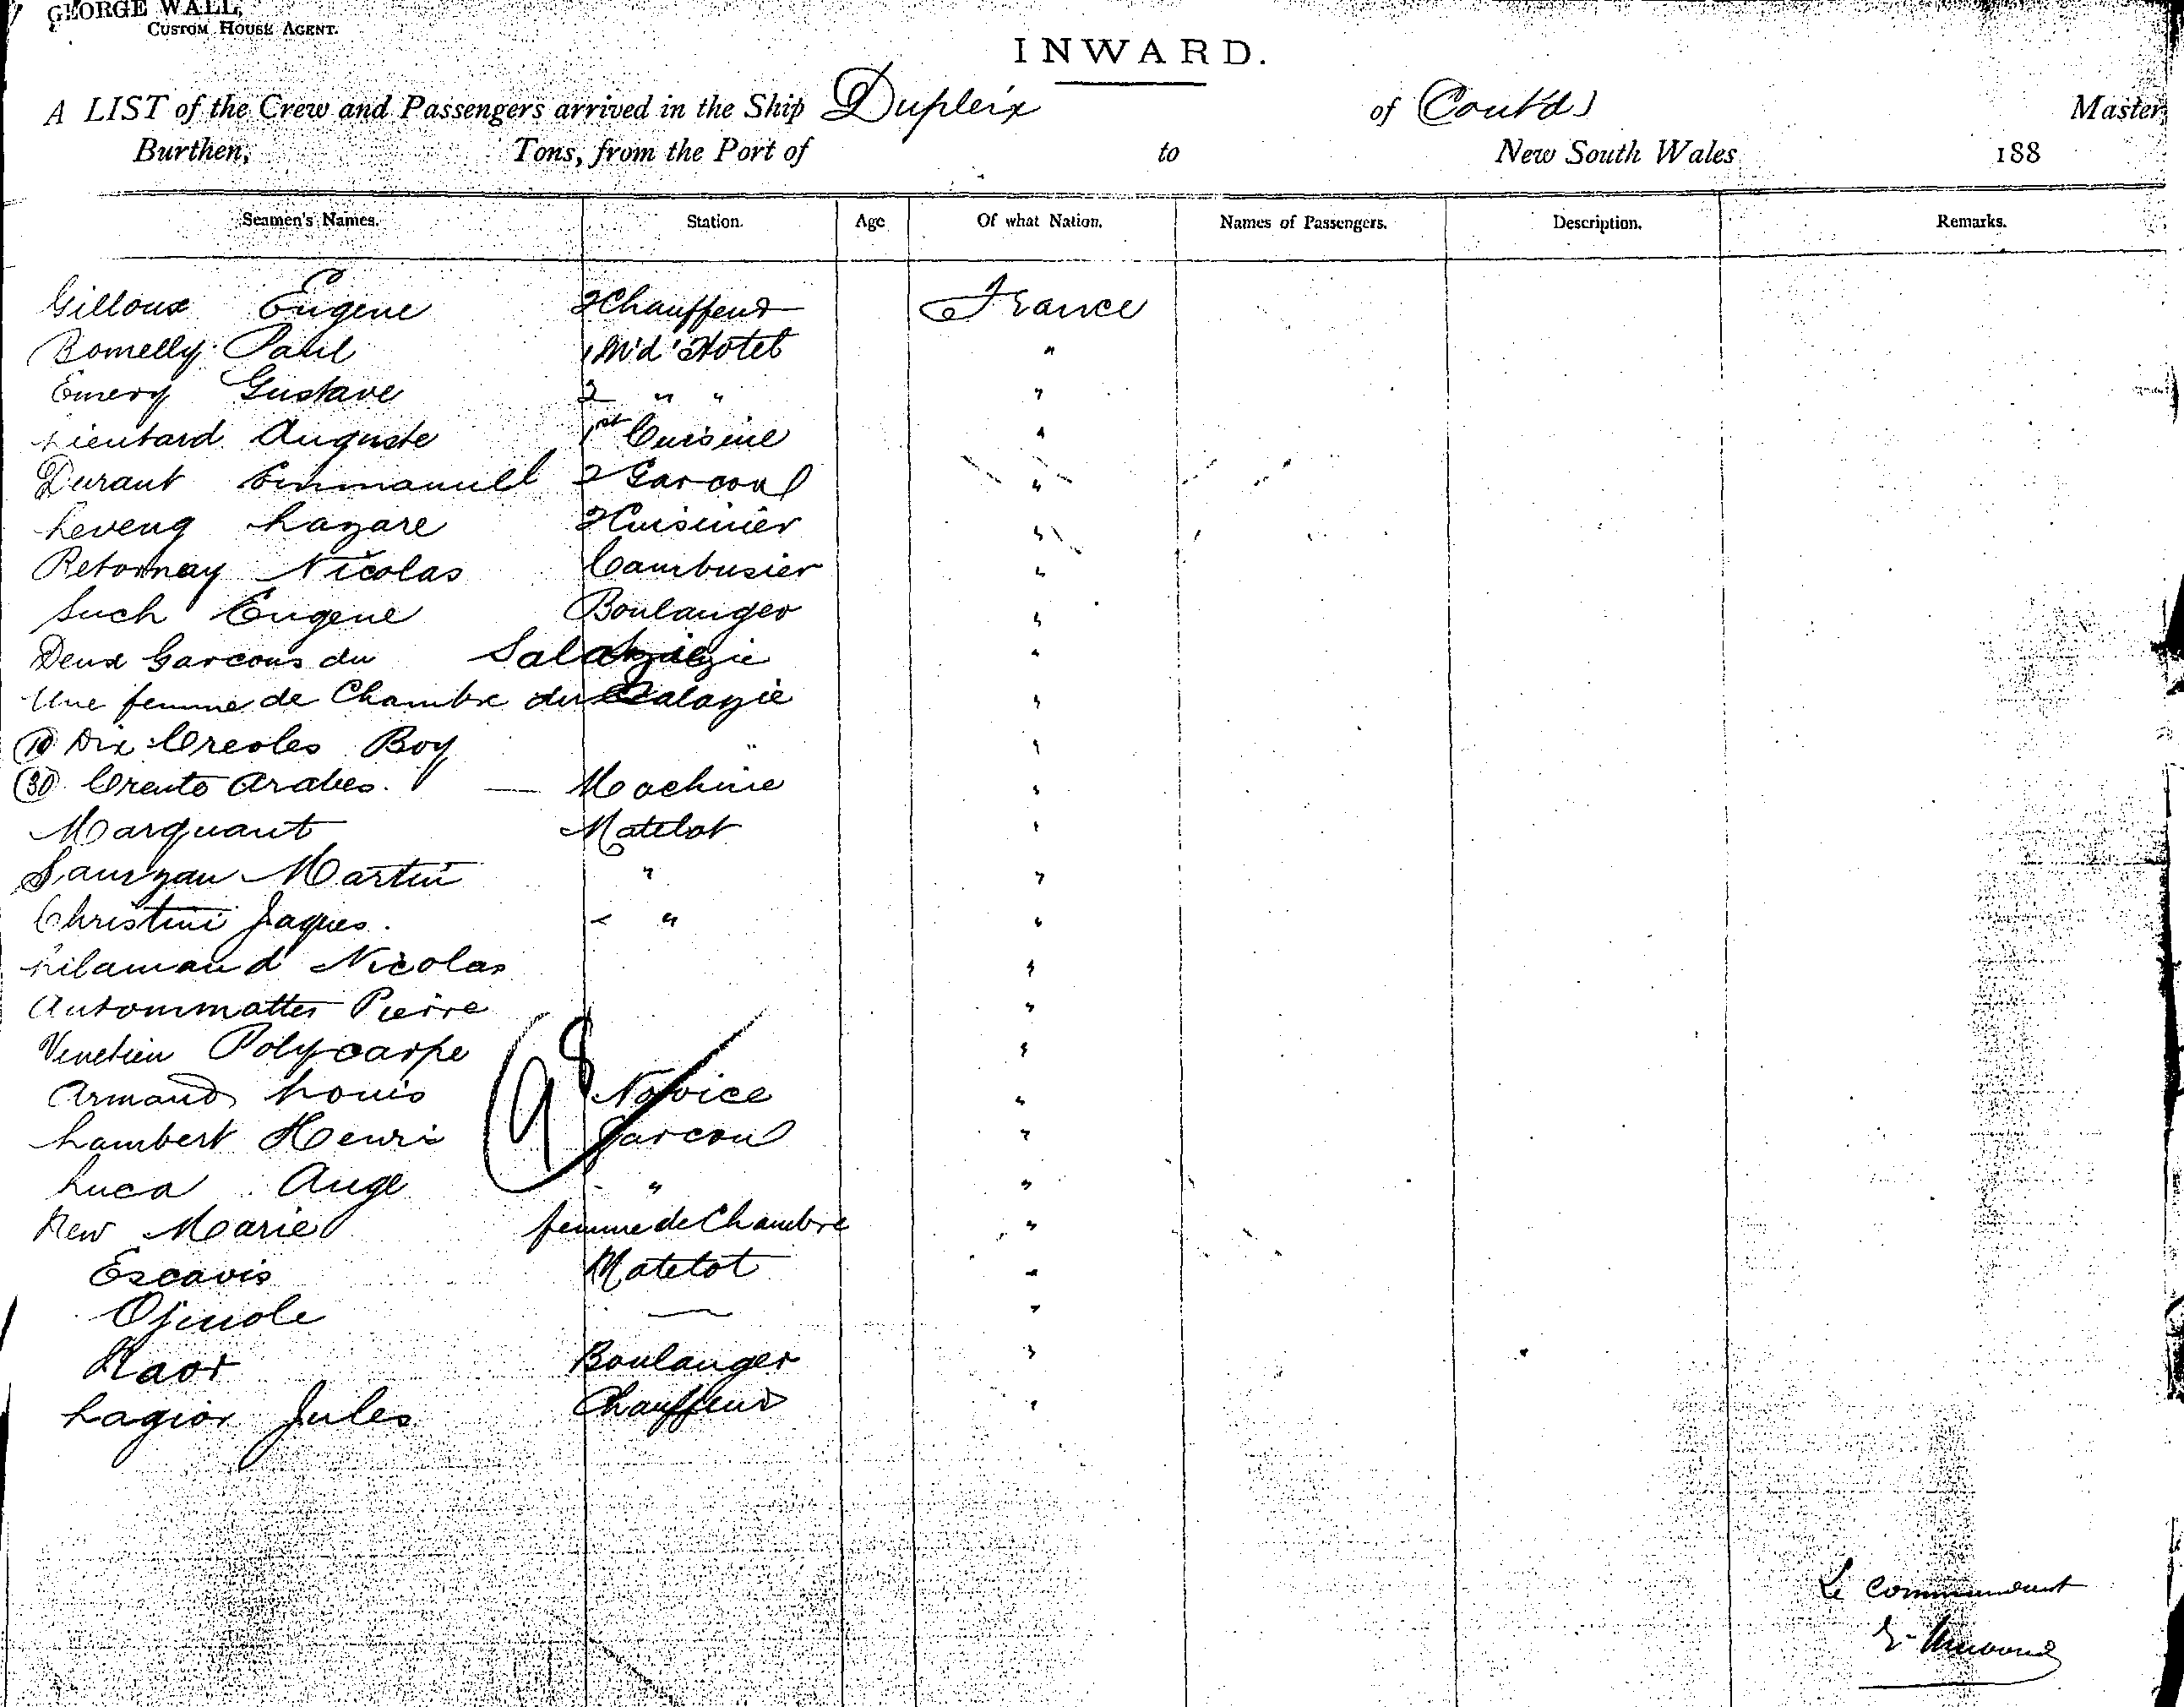 GEORGE WALL,
CUSTOM HOUSE AGENT.
INWARD.
A LIST of the Crew and Passengers arrived in the Ship Dupleix of (Cont'd) Master,
Burthen, Tons, from the Port of to New South Wales 188
Seamen's Names. Station. Age Of what Nation. Names of Passengers. Description. Remarks.
Gilloux Eugene 2 Chauffeur France
Bomelly Paul 1 M'd'Hotel "
Emery Gustave 2 " " "
Lieutard Auguste 1st Cuisine "
Durant Emmanuel 2 Garcon "
Leveng Lazare 2 Cuisinier "
Retornay Nicolas Cambusier "
Such Eugene Boulanger "
Deux Garcons du Salazie "
Une femme de Chambre du Salazie "
(10) Dix Creoles Boy " "
(30) Trente Arabes. — Machine "
Marquant Matelot "
Sauzzau Martin " "
Christini Jaques. " "
Nicolas "
Pierre "
Venetien Polycarpe "
98
Armand Louis Novice "
Lambert Henri Garcon "
Luca Ange " "
Rew Marie femme de Chambre "
Escavis Matelot "
Ojinole — "
Boulanger "
Lagior Jules Chauffeur "
Le Commandant